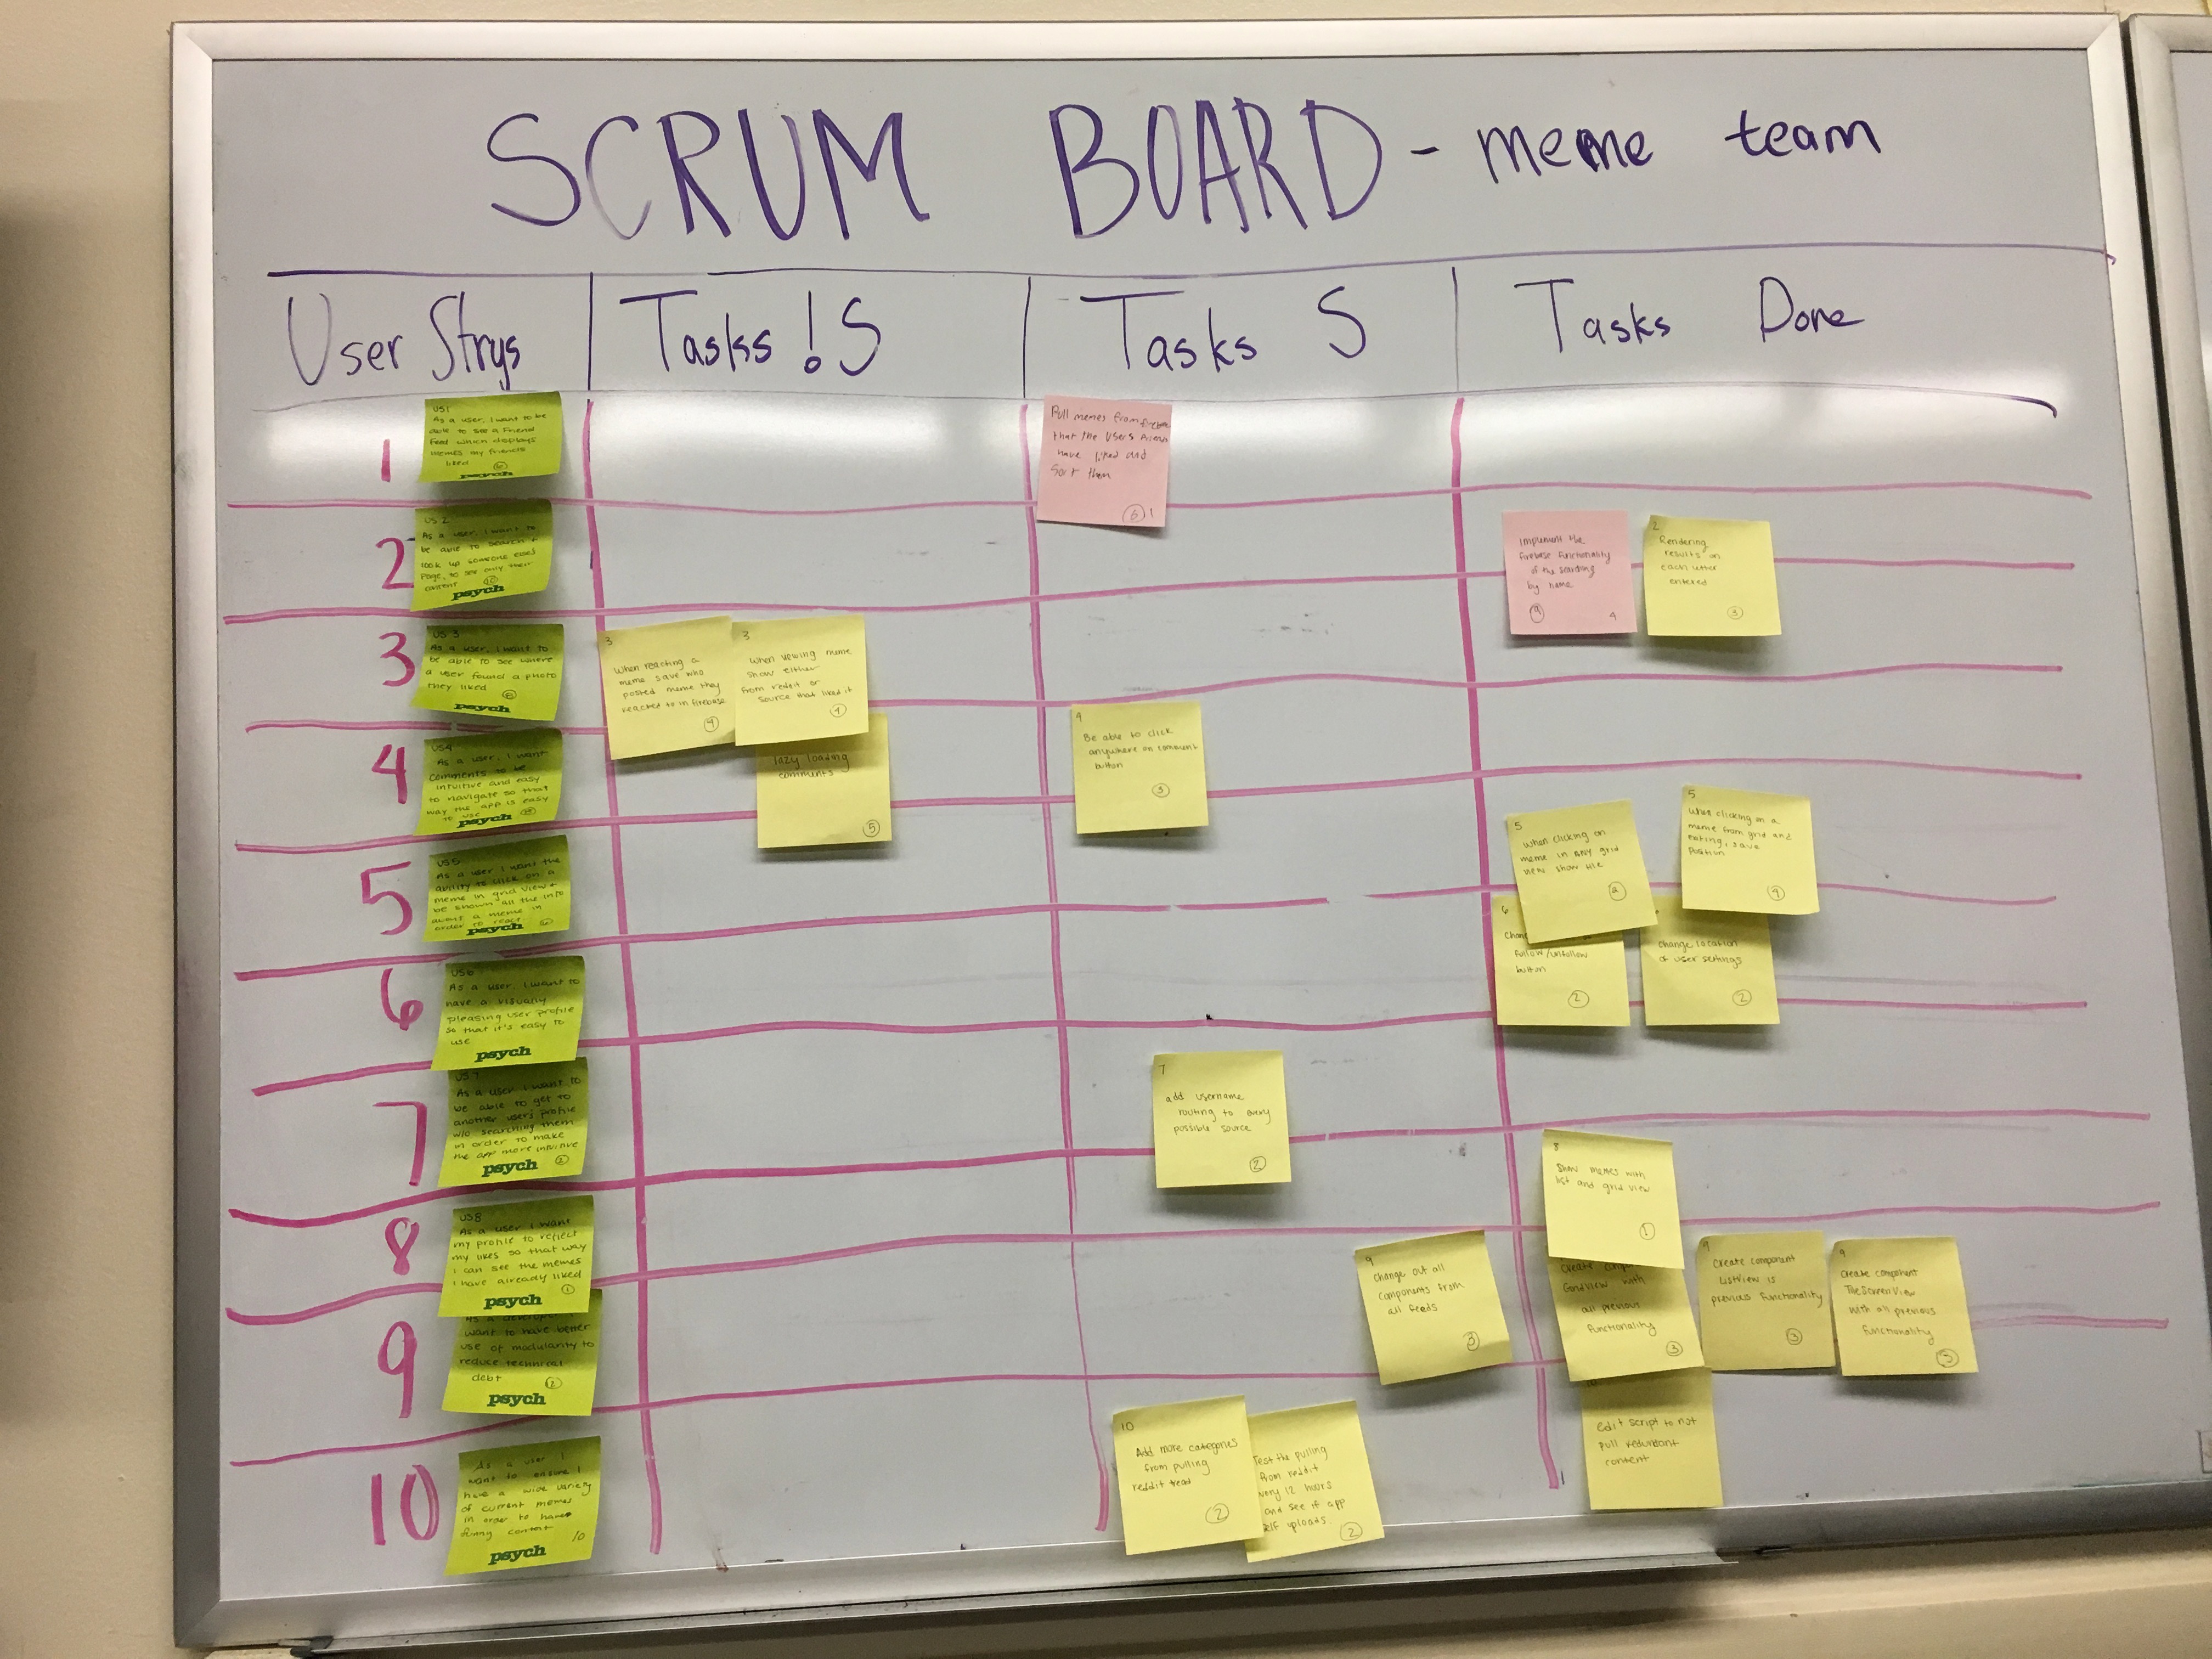 SCRUM BOARD - meme team
User Strys
Tasks !S
Tasks S
Tasks Done
1
US1
As a user, I want to be
able to see a Friend
Feed which displays
memes my friends
liked
psych
Pull memes from
that the users
have liked and
Sort them
6 1
2
US 2
As a user, I want to
be able to search +
look up someone elses
page, to see only their
content
psych
Implement the
firebase functionality
of the searching
by name
4
2
Rendering
results on
each letter
entered
3
3
US 3
As a user, I want to
be able to see where
a user found a photo
they liked
psych
3
When reacting a
meme save who
posted meme they
reacted to in firebase
4
3
When viewing meme
show either
from reddit or
source that liked it
4
4
US4
As a user, I want
comments to be
intuitive and easy
to navigate so that
way the app is easy
to use
psych
lazy loading
comments
5
4
Be able to click
anywhere on comment
button
3
5
US5
As a user I want the
ability to click on a
meme in grid view +
be shown all the info
about a meme in
order to react
psych
5
When clicking on
meme in any grid
view show tile
2
5
When clicking on a
meme from grid and
exiting, save
position
4
6
US6
As a user, I want to
have a visually
pleasing user profile
so that it's easy to
use
psych
6
Follow/unfollow
button
2
change location
of user settings
2
7
US7
As a user I want to
be able to get to
another users profile
w/o searching them
in order to make
the app more intuitive
2
psych
7
add username
routing to every
possible source
2
8
US8
As a user I want
my profile to reflect
my likes so that way
I can see the memes
I have already liked
1
psych
8
Show memes with
list and grid view
1
9
As a developer
want to have better
use of modularity to
reduce technical
debt
psych
9
Change out all
components from
all feeds
3
Create
GridView with
all previous
functionality
3
9
Create component
ListView is
previous functionality
3
9
Create component
TileScreenView
with all previous
functionality
3
10
As a user I
want to ensure I
have a wide variety
of current memes
in order to have
funny content
10
psych
10
Add more categories
from pulling
reddit
2
Test the pulling
from reddit
12 hours
and see if app
uploads.
2
edit script to not
pull redundant
content